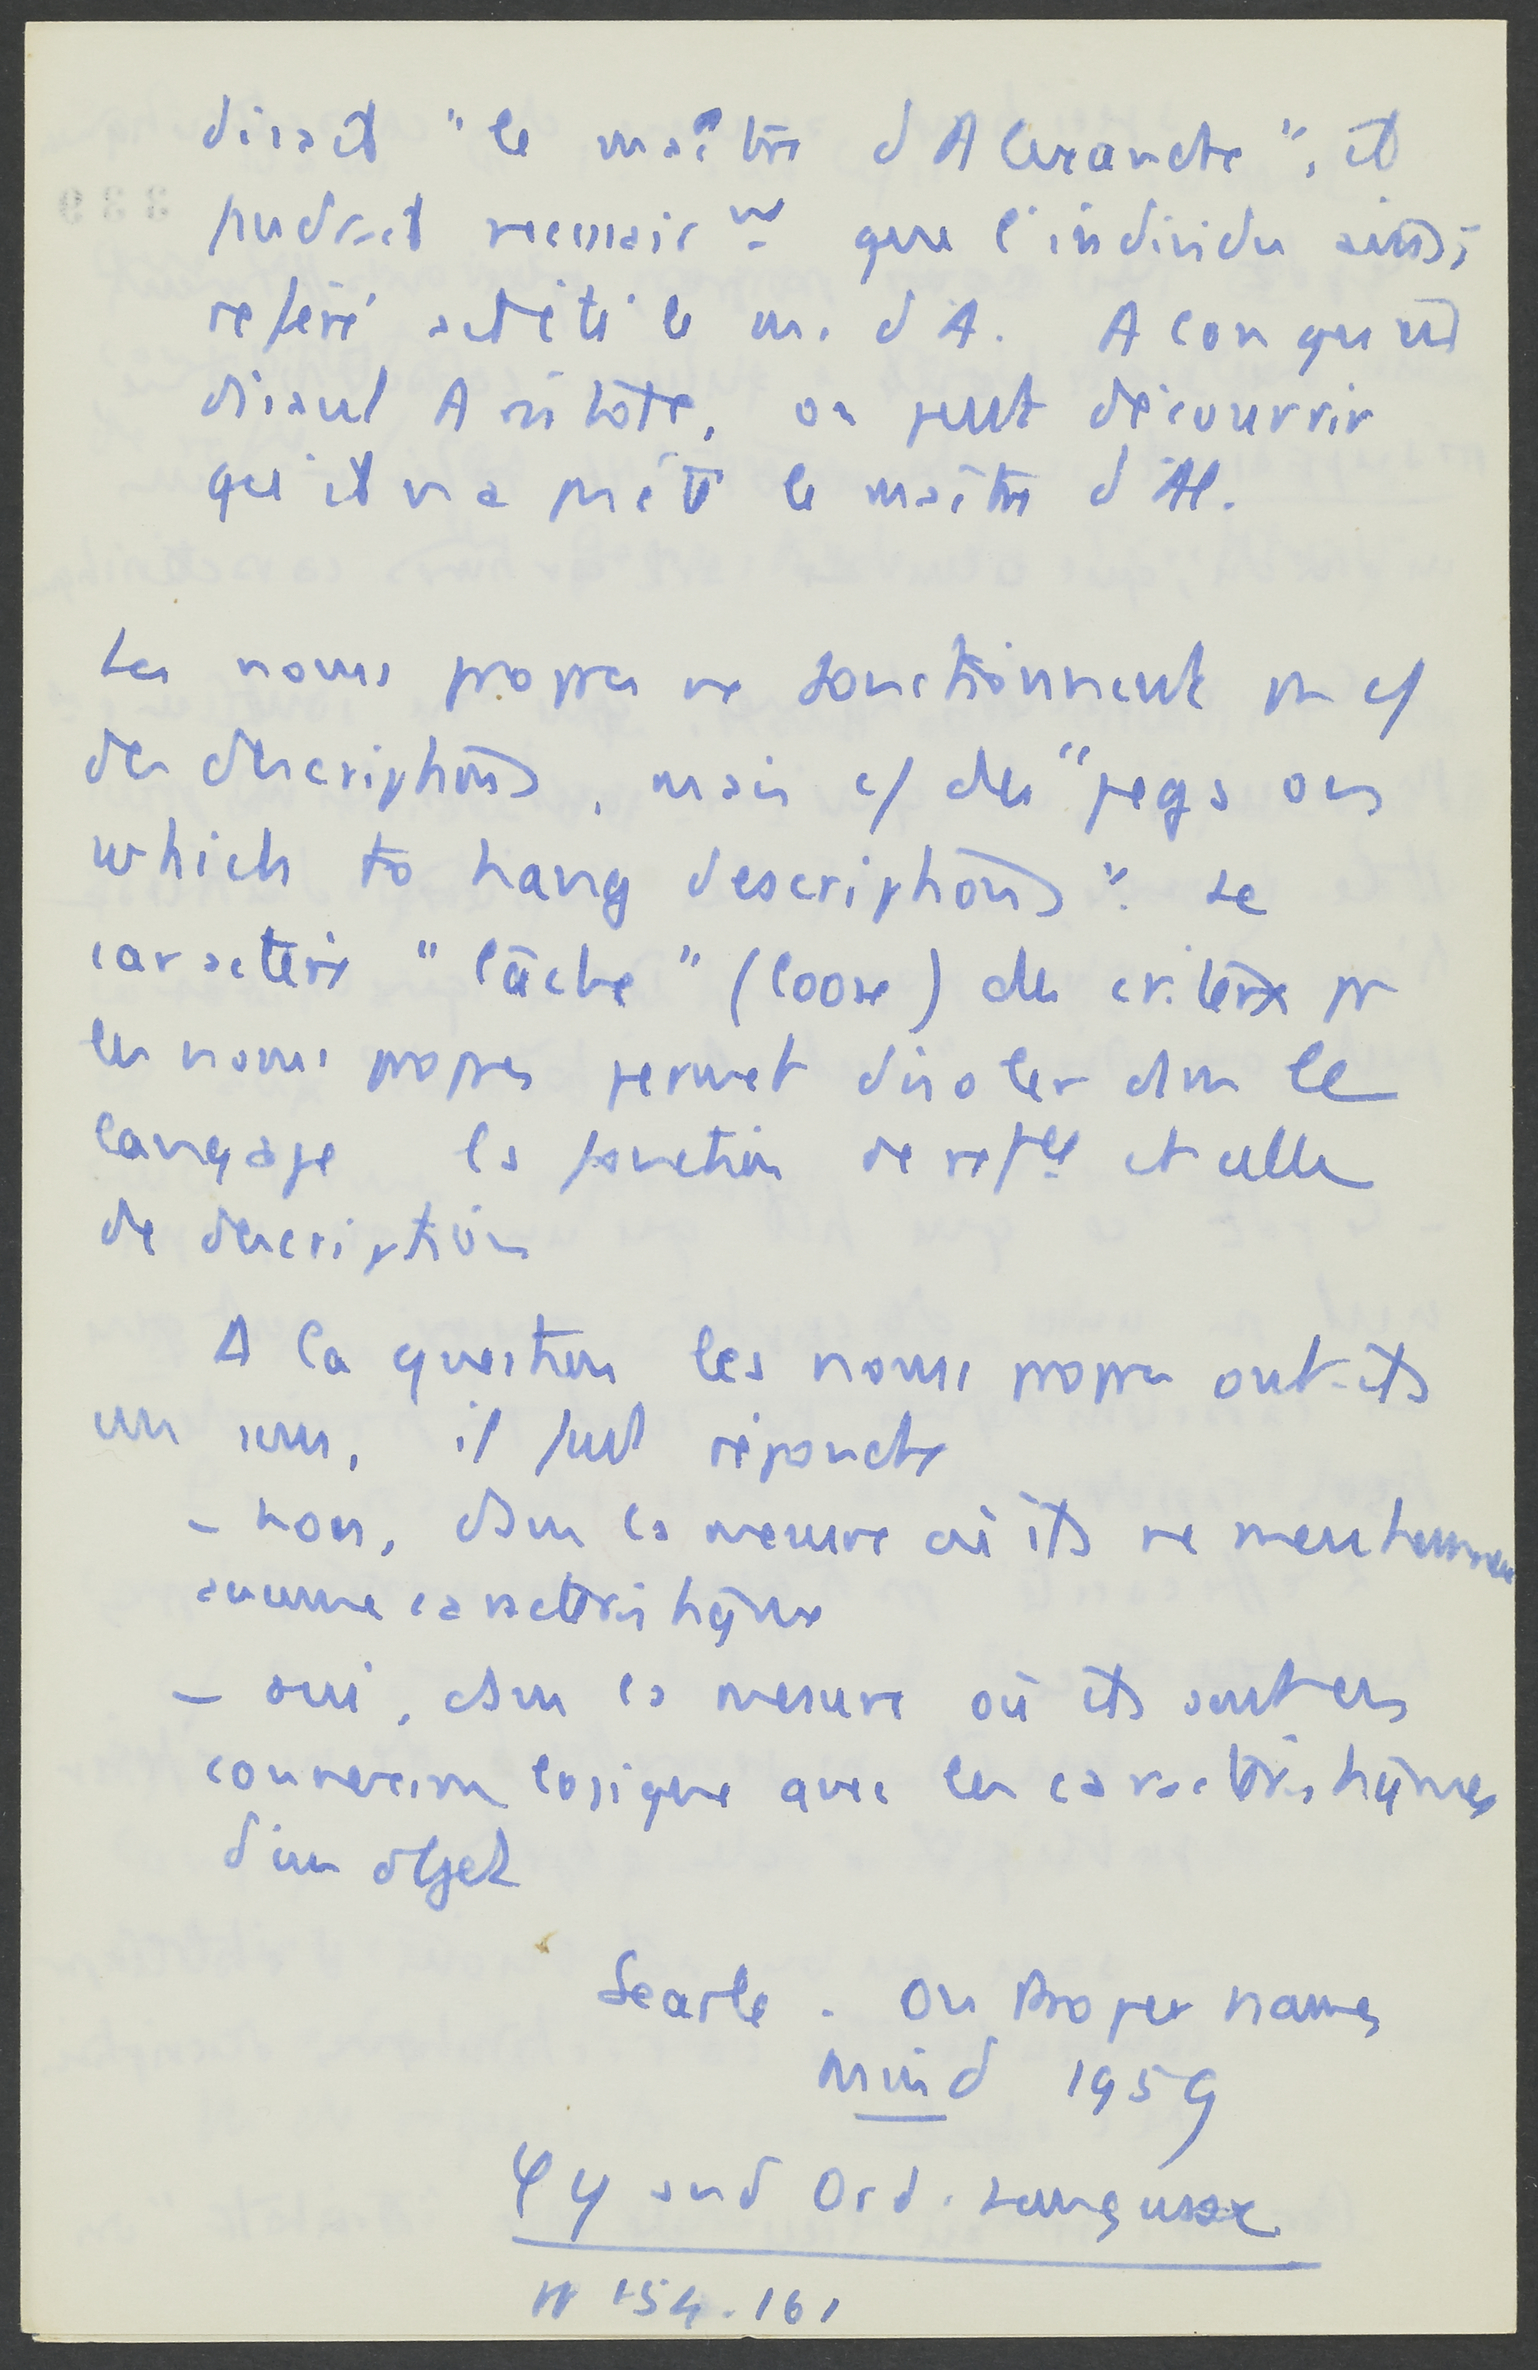 disait "le maître d'Alexandre", il
faudrait nécessairᵗ que l'individu ainsi
référé ait été le m. d'A. Alors qu'en
disant Aristote, on peut découvrir
qu'il n'a pas été le maître d'Al.
Les noms propres ne fonctionnent pas c/
des descriptions, mais c/ des "pegs on
which to hang descriptions". Le
caractère "lâche" (loose) des critères pr
les noms propres permet d'isoler dans le
langage la fonction de refce et celle
de description
A la question les noms propres ont-ils
un sens, il faut répondre
- non, dans la mesure où ils ne mentionnent
aucune caractéristique
- oui, dans la mesure où ils sont en
connexion logique avec les caractéristiques
d'un objet
Searle. On Proper names
Mind 1959
φy and Ord. Language
pp 154-161